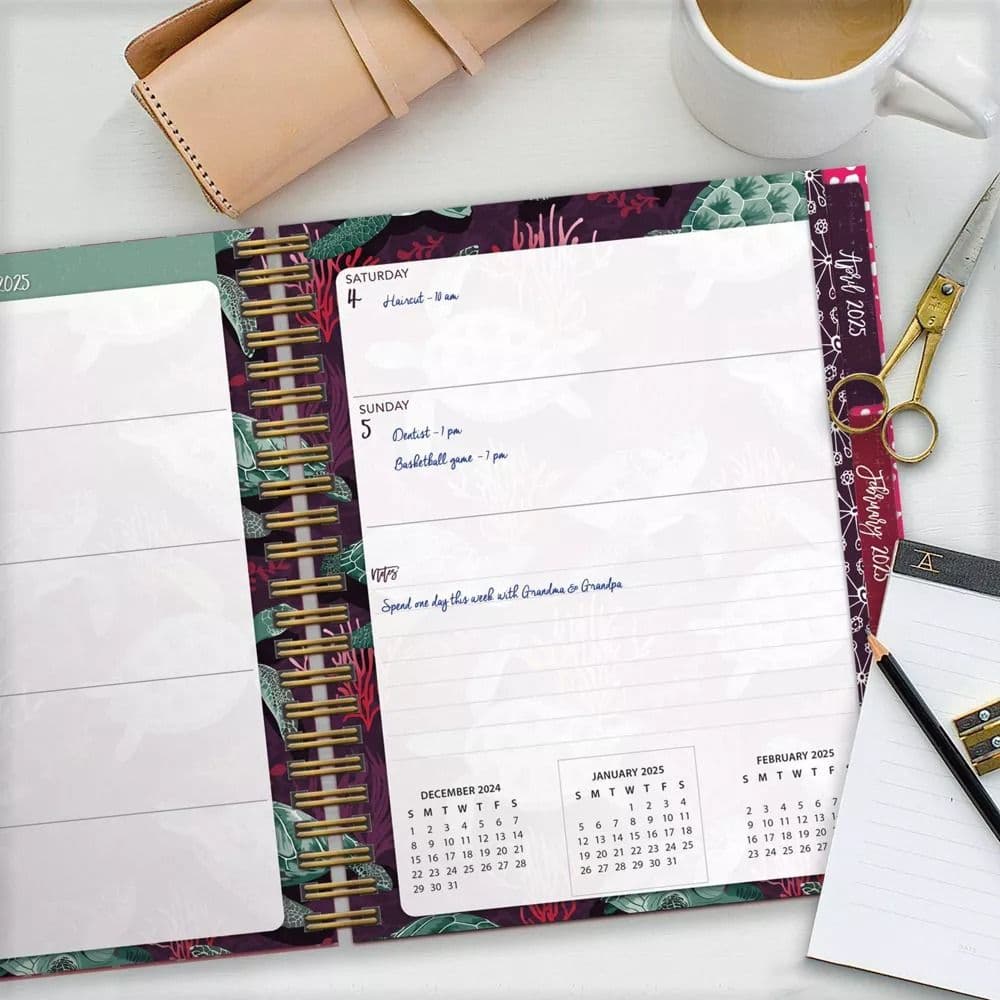 2025
SATURDAY
4 Haircut - 10 am
SUNDAY
5 Dentist - 1 pm
Basketball game - 7 pm
Notes
Spend one day this week with Grandma & Grandpa
DECEMBER 2024
S M T W T F S
1 2 3 4 5 6 7
8 9 10 11 12 13 14
15 16 17 18 19 20 21
22 23 24 25 26 27 28
29 30 31
JANUARY 2025
S M T W T F S
1 2 3 4
5 6 7 8 9 10 11
12 13 14 15 16 17 18
19 20 21 22 23 24 25
26 27 28 29 30 31
FEBRUARY 2025
S M T W T F S
2 3 4 5 6 7
9 10 11 12 13
16 17 18 19 20
23 24 25 26 27
April 2025
February 2025
A
DATE